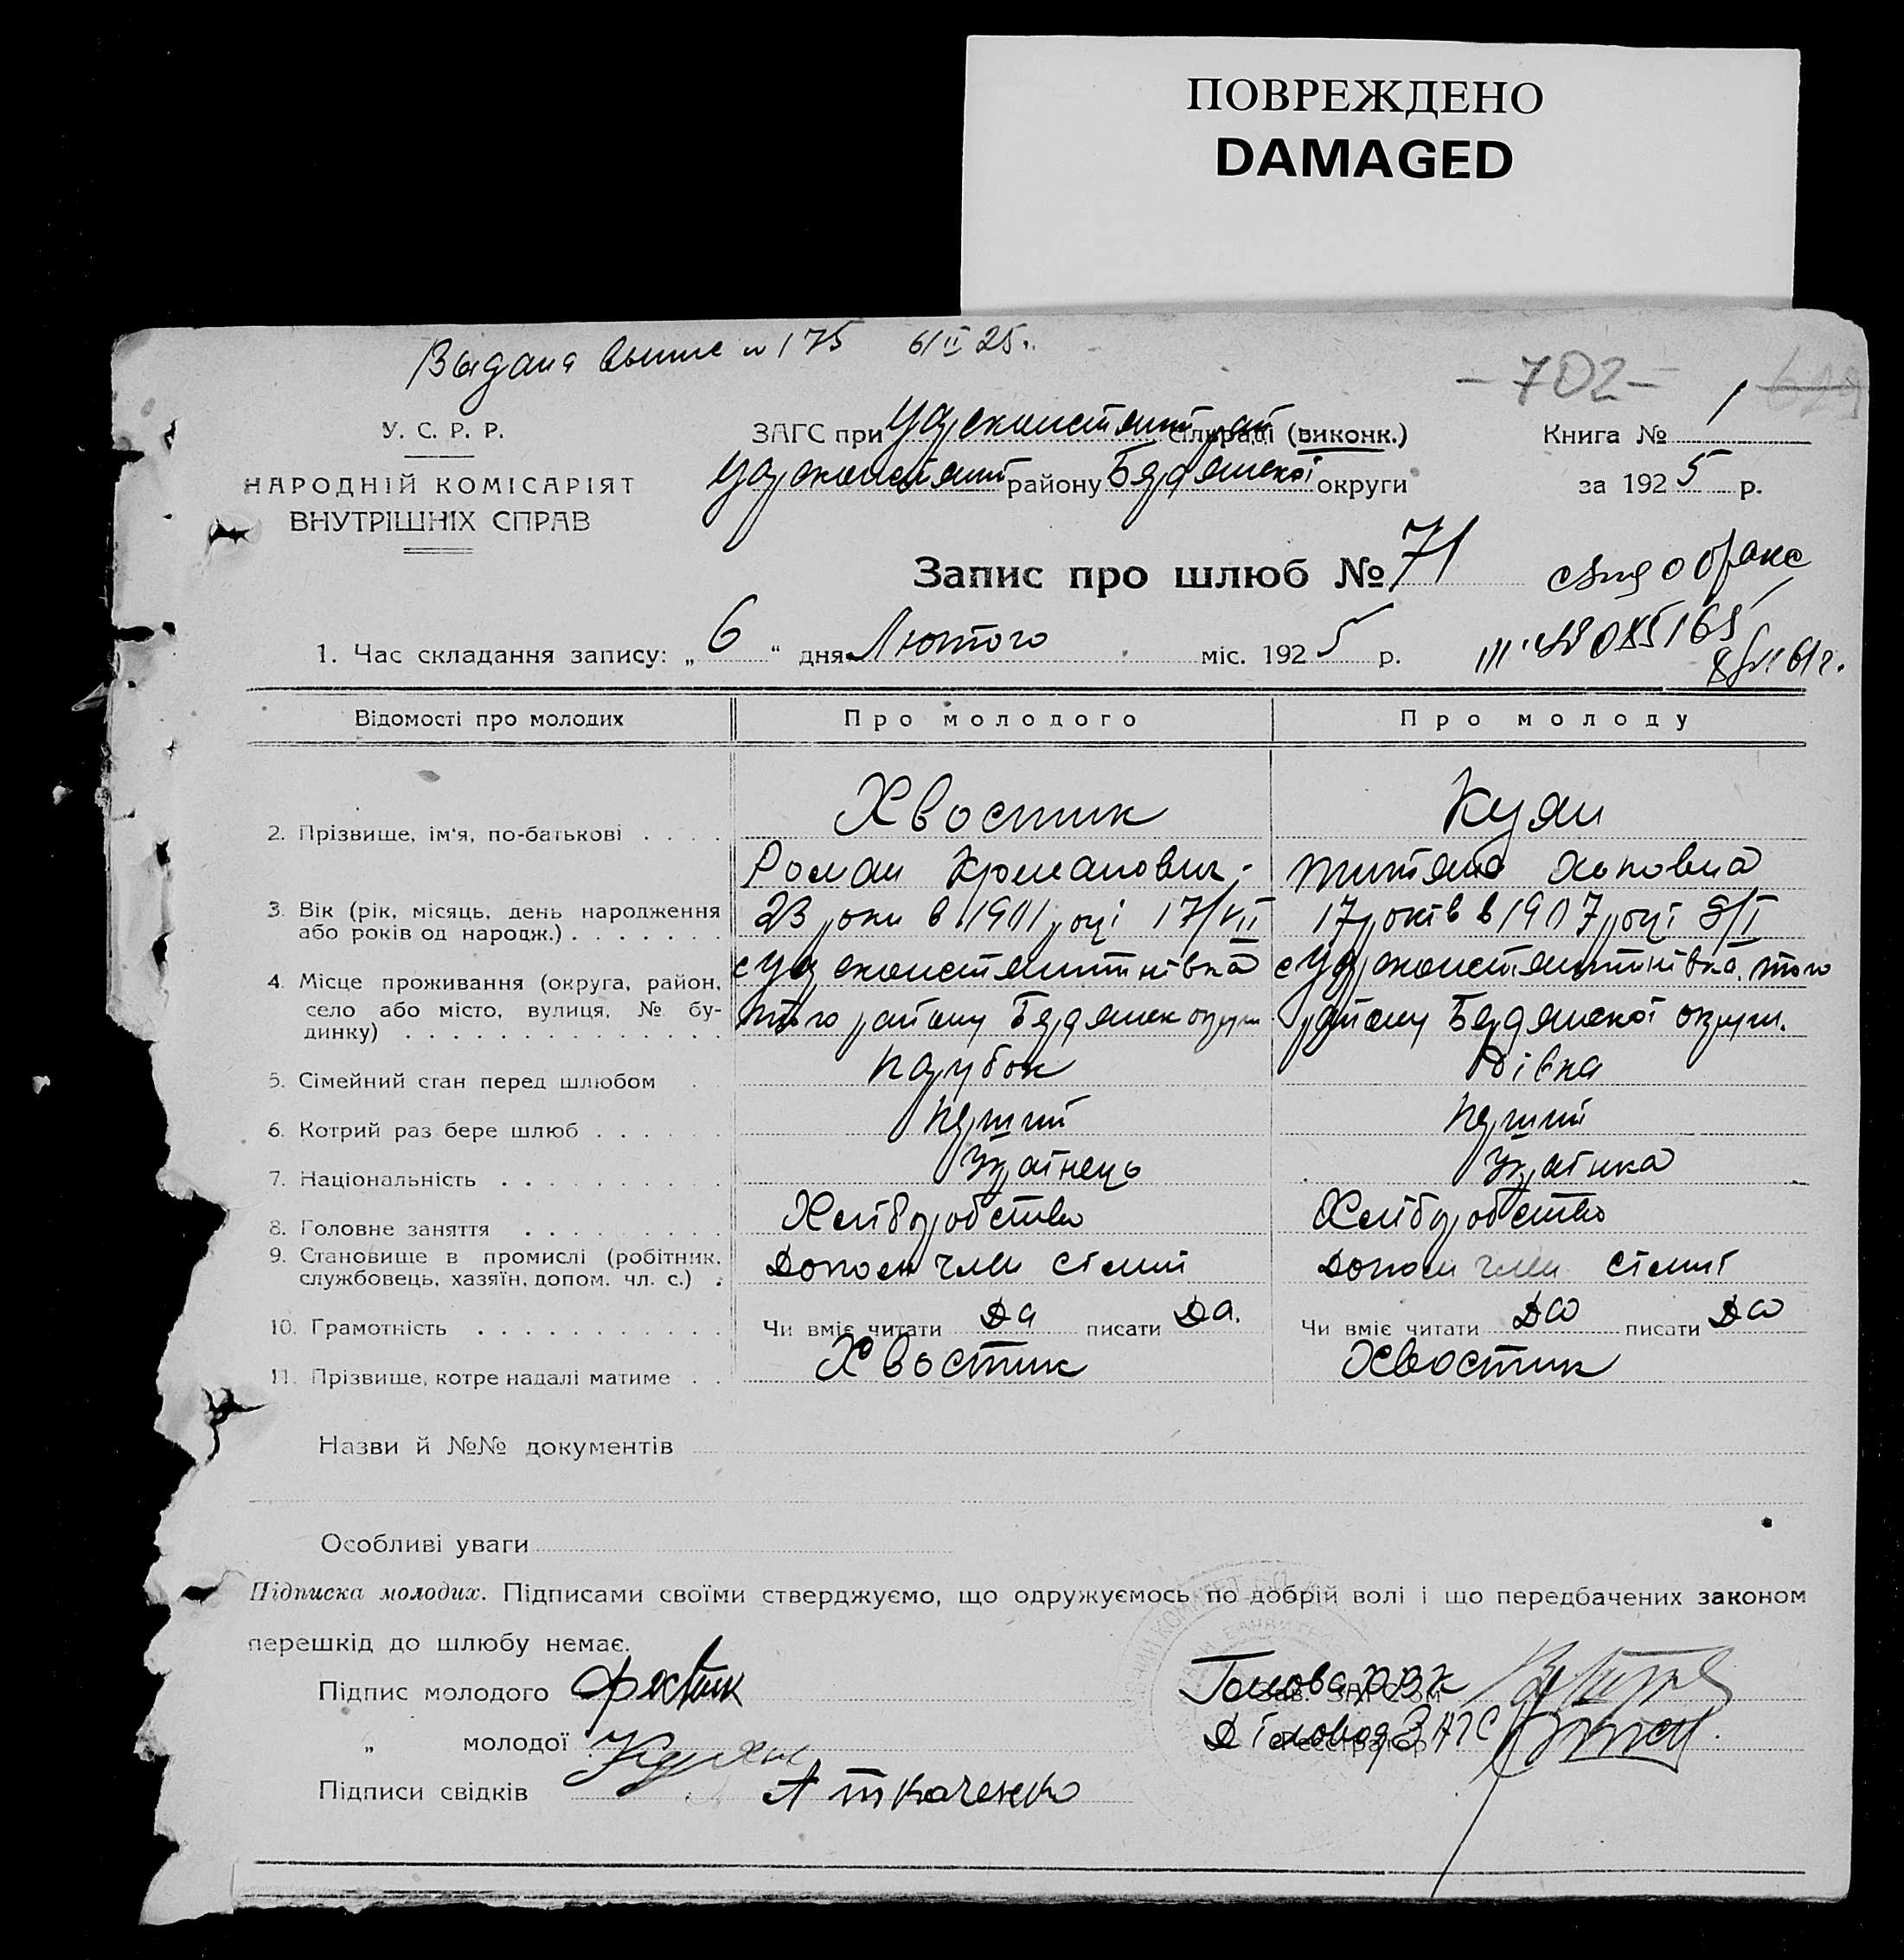 ПОВРЕЖДЕНО
DAMAGED
Выдана выпис № 175 6/II 25 г.
- 702 -
У. С. Р. Р.
НАРОДНІЙ КОМІСАРІЯТ
ВНУТРІШНІХ СПРАВ
ЗАГС при Цареконстянт рай сільраді (виконк.)
Книга № 1
Цареконстянт району Бердянської округи
за 1925 р.
Запис про шлюб № 71
свид о браке
1. Час складання запису: „ 6 “ дня Лютого міс. 1925 р.
Відомості про молодих Про молодого Про молоду
2. Прізвище, ім‘я, по-батькові . . . . Хвостик Куян
Роман Титяна
3. Вік (рік, місяць, день народження або років од народж.) . . . . . . . 23 роки в 1901 році 17/VII 17 років в 1907 році 8/I
4. Місце проживання (округа, район, село або місто, вулиця, № будинку) . . . . . . . . . . . . . . с Цареконстянтинівка с Цареконстянтинівка того
того району Бердянськ округи району Бердянської округи.
5. Сімейний стан перед шлюбом . Парубок Дівка
6. Котрий раз бере шлюб . . . . . . Перший Перший
7. Національність . . . . . . . . . . Українець Українка
8. Головне заняття . . . . . . . . . Хліборобство Хліборобство
9. Становище в промислі (робітник, службовець, хазяїн, допом. чл. с.) . Допом член сімії Допом член сімії
10. Грамотність . . . . . . . . . . . Чи вміє читати Да писати Да. Чи вміє читати Да писати Да
11. Прізвище, котре надалі матиме . . Хвостик Хвостик
Назви й №№ документів
Особливі уваги
Підписка молодих. Підписами своїми стверджуємо, що одружуємось по добрій волі і що передбачених законом
перешкід до шлюбу немає.
Підпис молодого Голова РВК
Зав. ЗАГСом
„ молодої Діловод ЗАГС
Реєстратор
Підписи свідків А Ткаченко